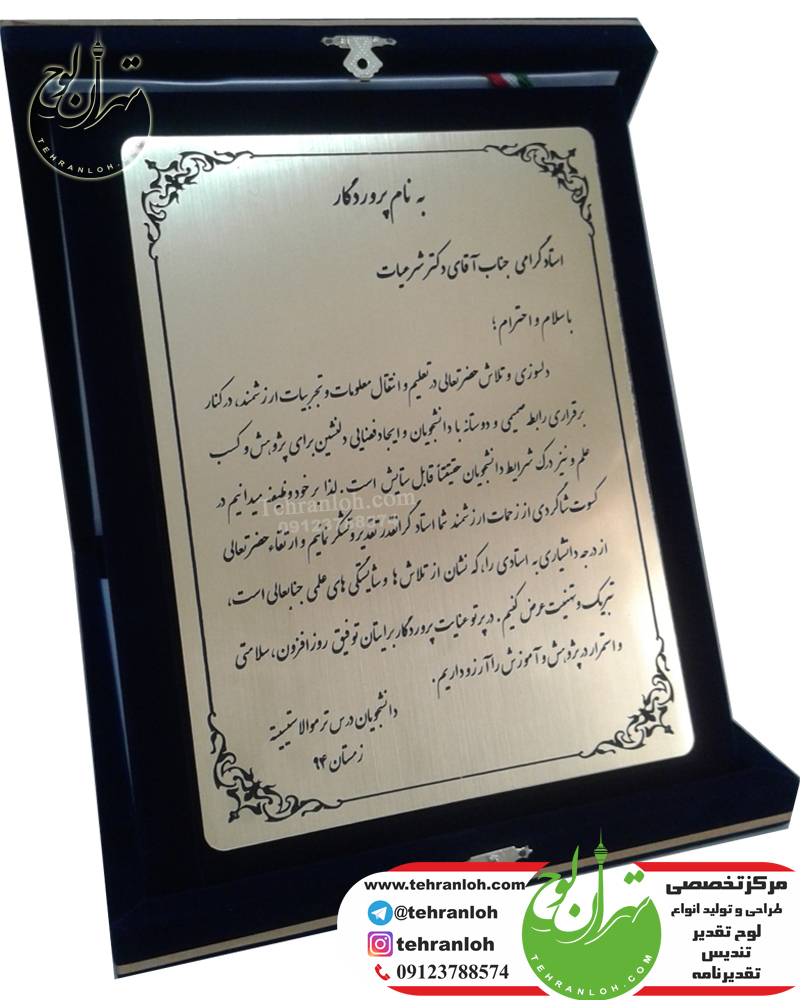 تهران لوح
TEHRANLOH.COM
به نام پروردگار
استاد گرامی جناب آقای دکتر شرعیات
با سلام و احترام ؛
دلسوزی و تلاش حضرتعالی در تعلیم و انتقال معلومات و تجربیات ارزشمند، در کنار
برقراری رابطه صمیمی و دوستانه با دانشجویان و ایجاد فضایی دلنشین برای پژوهش و کسب
علم و نیز درک شرایط دانشجویان حقیقتاً قابل ستایش است. لذا بر خود وظیفه میدانیم در
کسوت شاگردی از زحمات ارزشمند شما استاد گرانقدر تقدیر و تشکر نمایم و ارتقاء حضرتعالی
از درجه دانشیاری به استادی را، که نشان از تلاش ها و شایستگی های علمی جنابعالی است،
تبریک و تهنیت عرض کنیم. در پرتو عنایت پروردگار برایتان توفیق روز افزون، سلامتی
و استمرار در پژوهش و آموزش را آرزو داریم.
دانشجویان درس ترموالاستیسیته
زمستان ۹۴
Tehranloh.com
09123788574
www.tehranloh.com
@tehranloh
tehranloh
09123788574
تهران لوح
TEHRANLOH.COM
مرکز تخصصی
طراحی و تولید انواع
لوح تقدیر
تندیس
تقدیرنامه